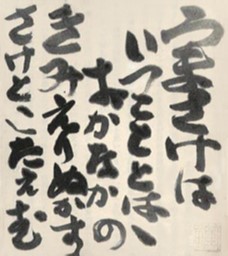 うまさけは
いつこととはゝ
おかなかの
きみ
さけとこたえむ